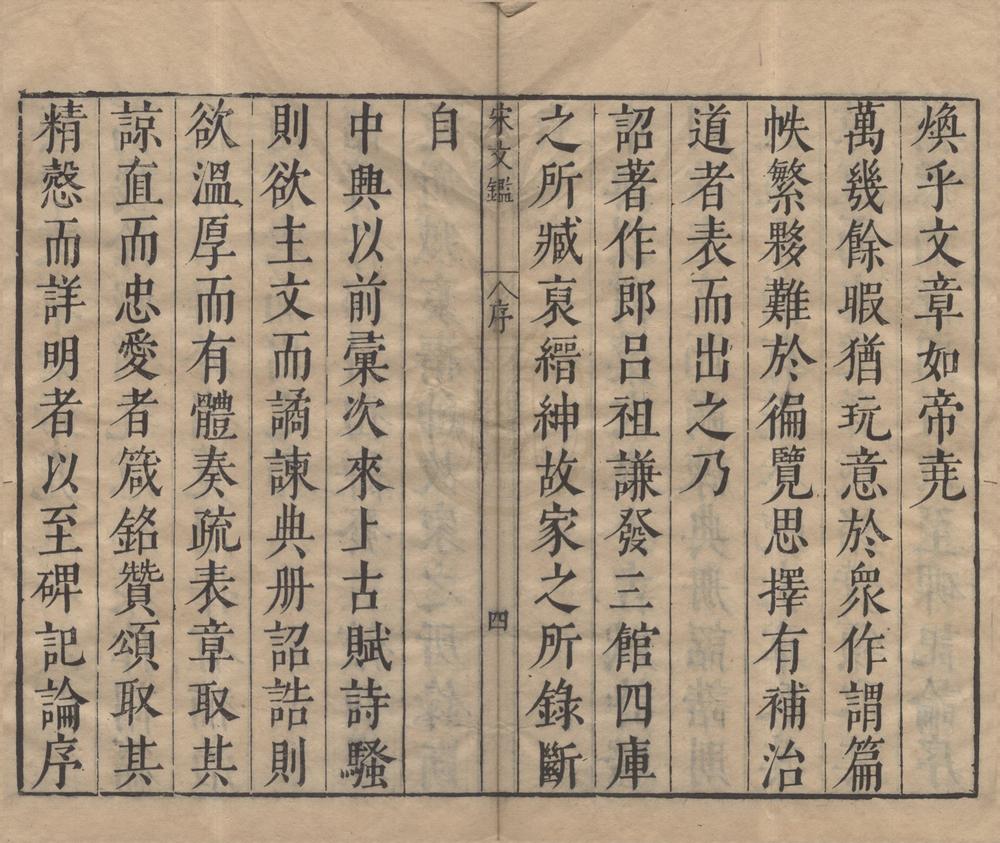 煥乎文章如帝堯
萬幾餘暇猶玩意於衆作謂篇
帙繁夥難於徧覽思擇有補治
道者表而出之乃
詔著作郎呂祖謙發三館四庫
之所臧裒縉紳故家之所錄斷
自
宋文鑑 序 四
中興以前彙次來上古賦詩騷
則欲主文而譎諫典册詔誥則
欲溫厚而有體奏疏表章取其
諒直而忠愛者箴銘贊頌取其
精愨而詳明者以至碑記論序